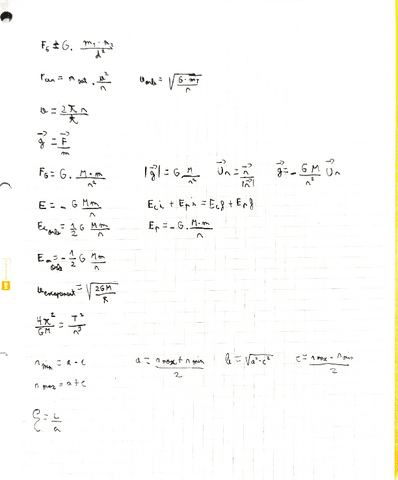 F_G = G · m₁·m₂/d²
F_cen = m_sat · v²/r    v_orb = √(G·m_T/r)
v = 2πr/T
g⃗ = F⃗/m
F_G = G · M·m/r²    |g⃗| = G M/r²    U⃗r = r⃗/|r⃗|    g⃗ = - GM/r² U⃗r
E = - G Mm/r    Eci + Epi = Ecf + Epf
Ec orb = 1/2 G Mm/r    Ep = - G · M·m/r
Em orb = - 1/2 G Mm/r
v escape = √(2GM/R)
4π²/GM = T²/r³
r min = a - c    a = (r max + r min)/2    b = √(a²-c²)    c = (r max - r min)/2
r max = a + c
ξ = c/a